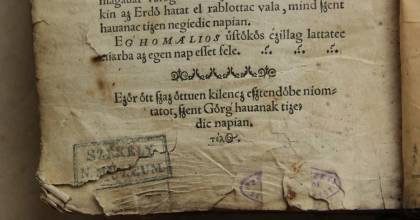 kin az Erdő hatat el rablottac vala, mind ßent
hauanac tizen negiedic napian.
EGHOMALIOS üstökös czillag lattatec
az egen nap esset fele.
Ezör ött ßaz öttuen kilencz esztendőbe niom-
tator, ßent Görg hauanak tize-
dic napian.
τέλος.
SZÉKELY